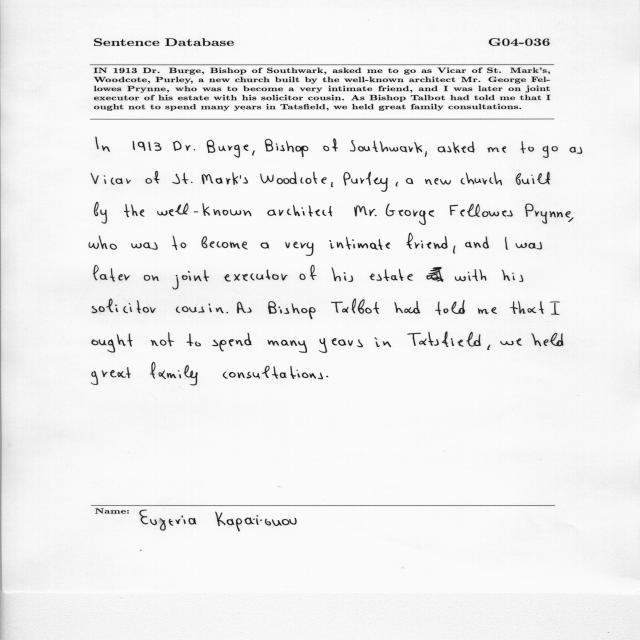 Sentence Database G04-036
IN 1913 Dr. Burge, Bishop of Southwark, asked me to go as Vicar of St. Mark's,
Woodcote, Purley, a new church built by the well-known architect Mr. George Fel-
lowes Prynne, who was to become a very intimate friend, and I was later on joint
executor of his estate with his solicitor cousin. As Bishop Talbot had told me that I
ought not to spend many years in Tatsfield, we held great family consultations.
In 1913 Dr. Burge, Bishop of Southwark, asked me to go as
Vicar of St. Mark's Woodcote, Purley, a new church built
by the well-known architect Mr. George Fellowes Prynne,
who was to become a very intimate friend, and I was
later on joint executor of his estate with his
solicitor cousin. As Bishop Talbot had told me that I
ought not to spend many years in Tatsfield, we held
great family consultations.
Name: Ευγενία